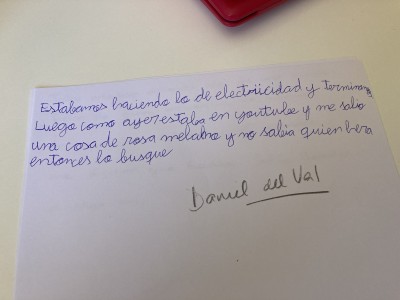 Estabamos haciendo lo de electriicidad y termine
Luego como ayer estaba en youtube y me salio
una cosa de rosa melano y no sabia quien bera
entonces lo busque
Daniel del Val